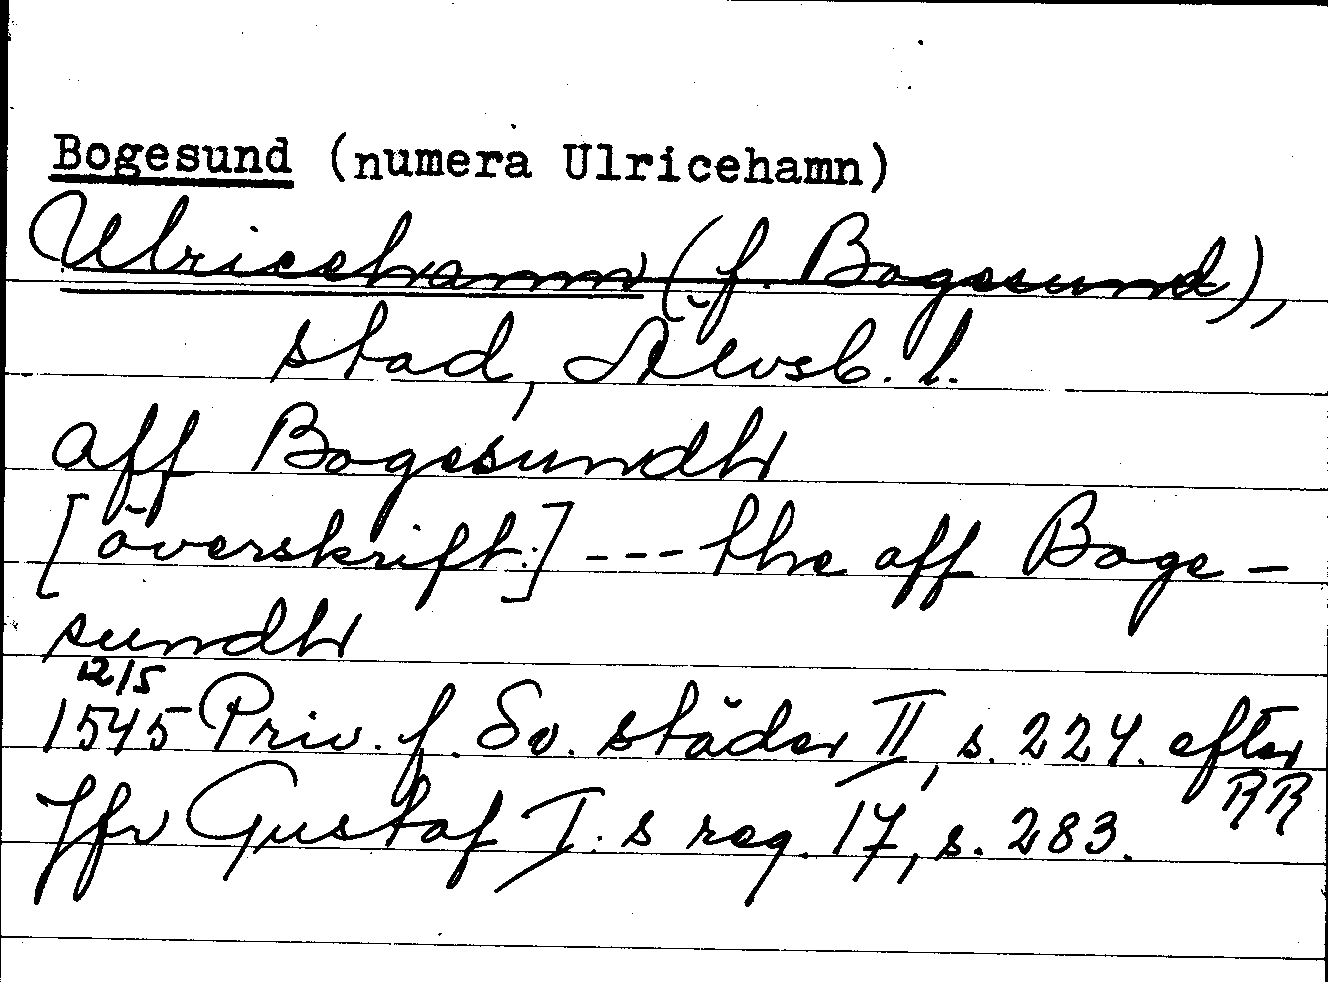 Bogesund (numera Ulricehamn)
Ulricehamn (f. Bogesund),
stad, Älvsb. l.
aff Bogesundh
[överskift:] --- the aff Boge-
sundh
12/5
1545 Priv. f. Sv. städer II, s. 224. efter
RR
Jfr Gustaf I:s reg. 17, s. 283.